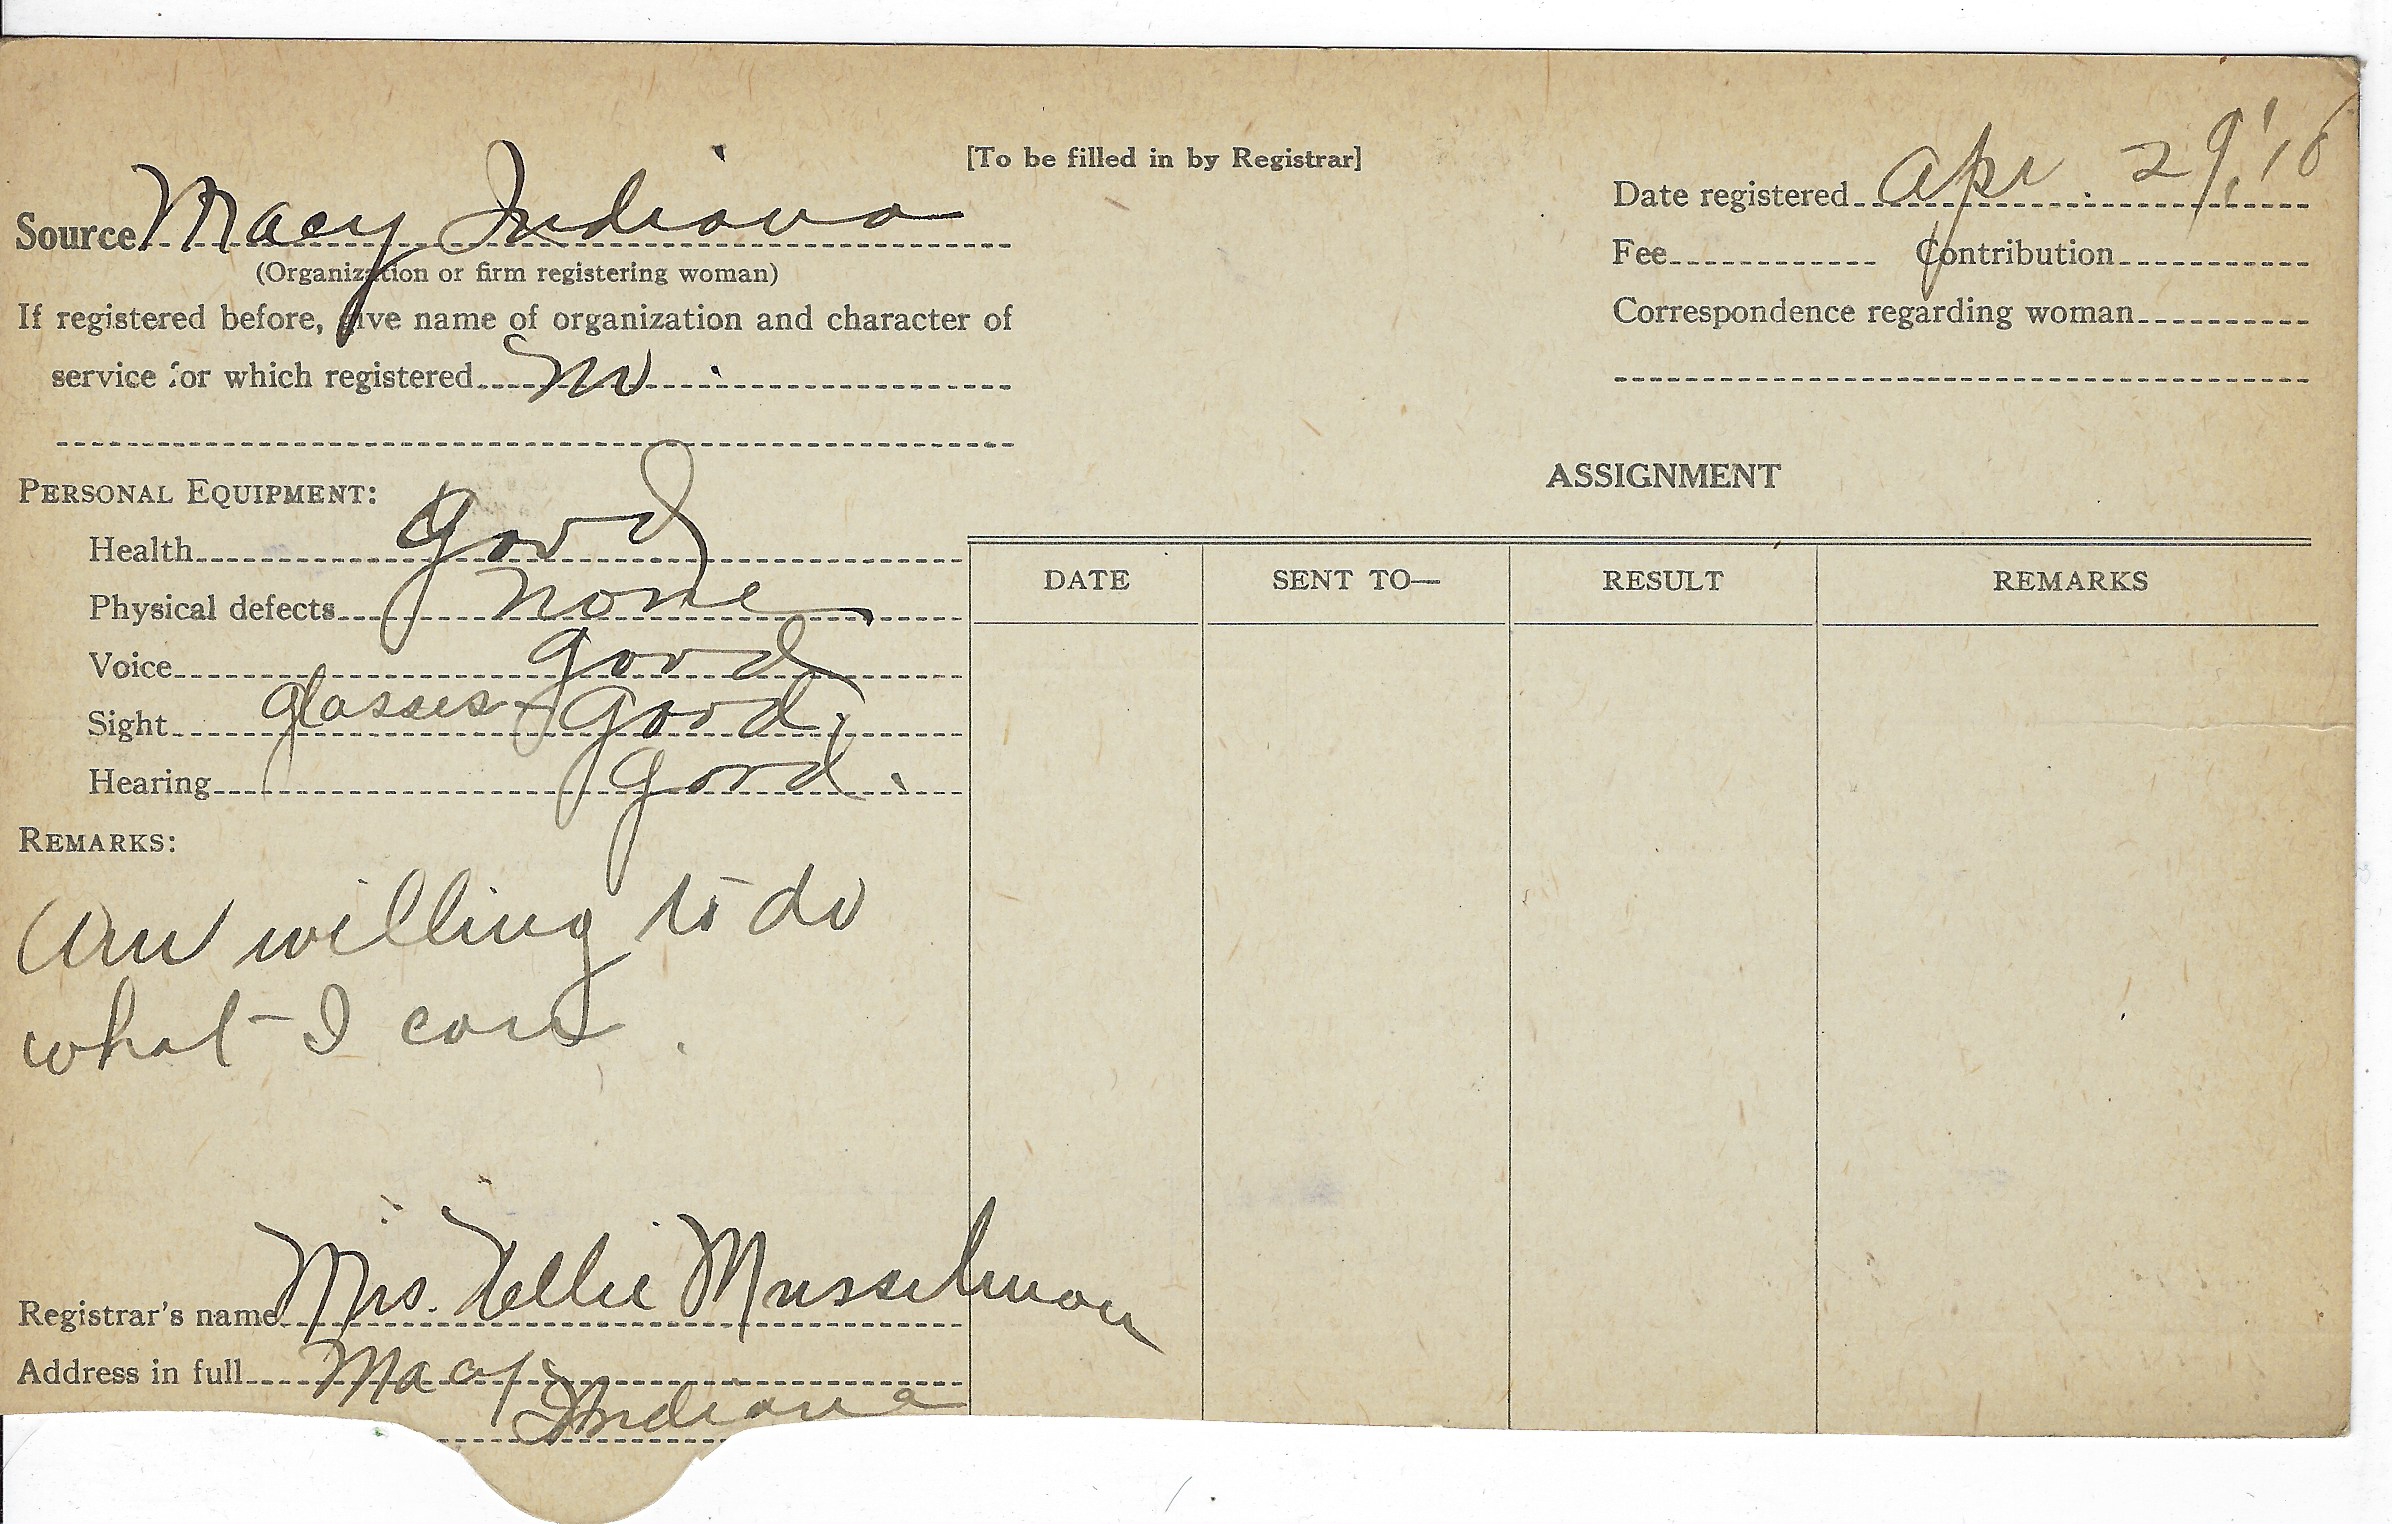 [To be filled in by Registrar]
Source Macy Indiana
(Organization or firm registering woman)
If registered before, give name of organization and character of
service for which registered no.
Date registered Apr. 29, '18
Fee Contribution
Correspondence regarding woman
PERSONAL EQUIPMENT:
Health good
Physical defects none
Voice good
Sight glasses - good,
Hearing good.
REMARKS:
Am willing to do
what I can.
Registrar's name Mrs. Nellie Musselman
Address in full Macy
Indiana
ASSIGNMENT
DATE SENT TO— RESULT REMARKS